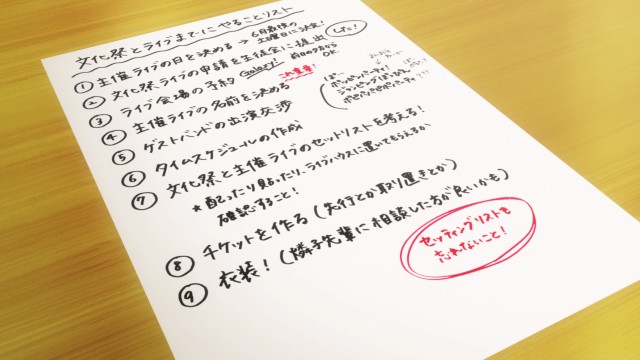 文化祭とライブまでにやることリスト
①主催ライブの日を決める→6月最後の土曜日に決定!
②文化祭ライブの申請を生徒会に提出 した!
③ライブ会場の予約 Galaxy! 前日の夕方からOK
④主催ライブの名前を決める これ重要!
⑤ゲストバンドの出演交渉
⑥タイムスケジュールの作成
⑦文化祭と主催ライブのセットリストを考える!
★配ったり貼ったり、ライブハウスに置いてもらえるか
確認すること!
⑧チケットを作る(先行とか取り置きとか)
⑨衣装!(燐子先輩に相談した方が良いかも)
セッティングリストも
忘れないこと!